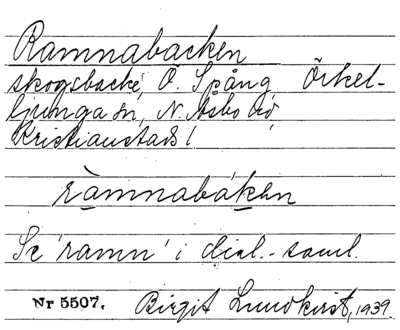 Ramnabacken
skogsbacke, Ö. Spång Örkel-
ljunga sn, N. Åsbo hd,
Kristianstads l
ràmnabákην
Se 'ramn' i dial.-saml.
Nr 5507. Birgit Lundkvist, 1939.